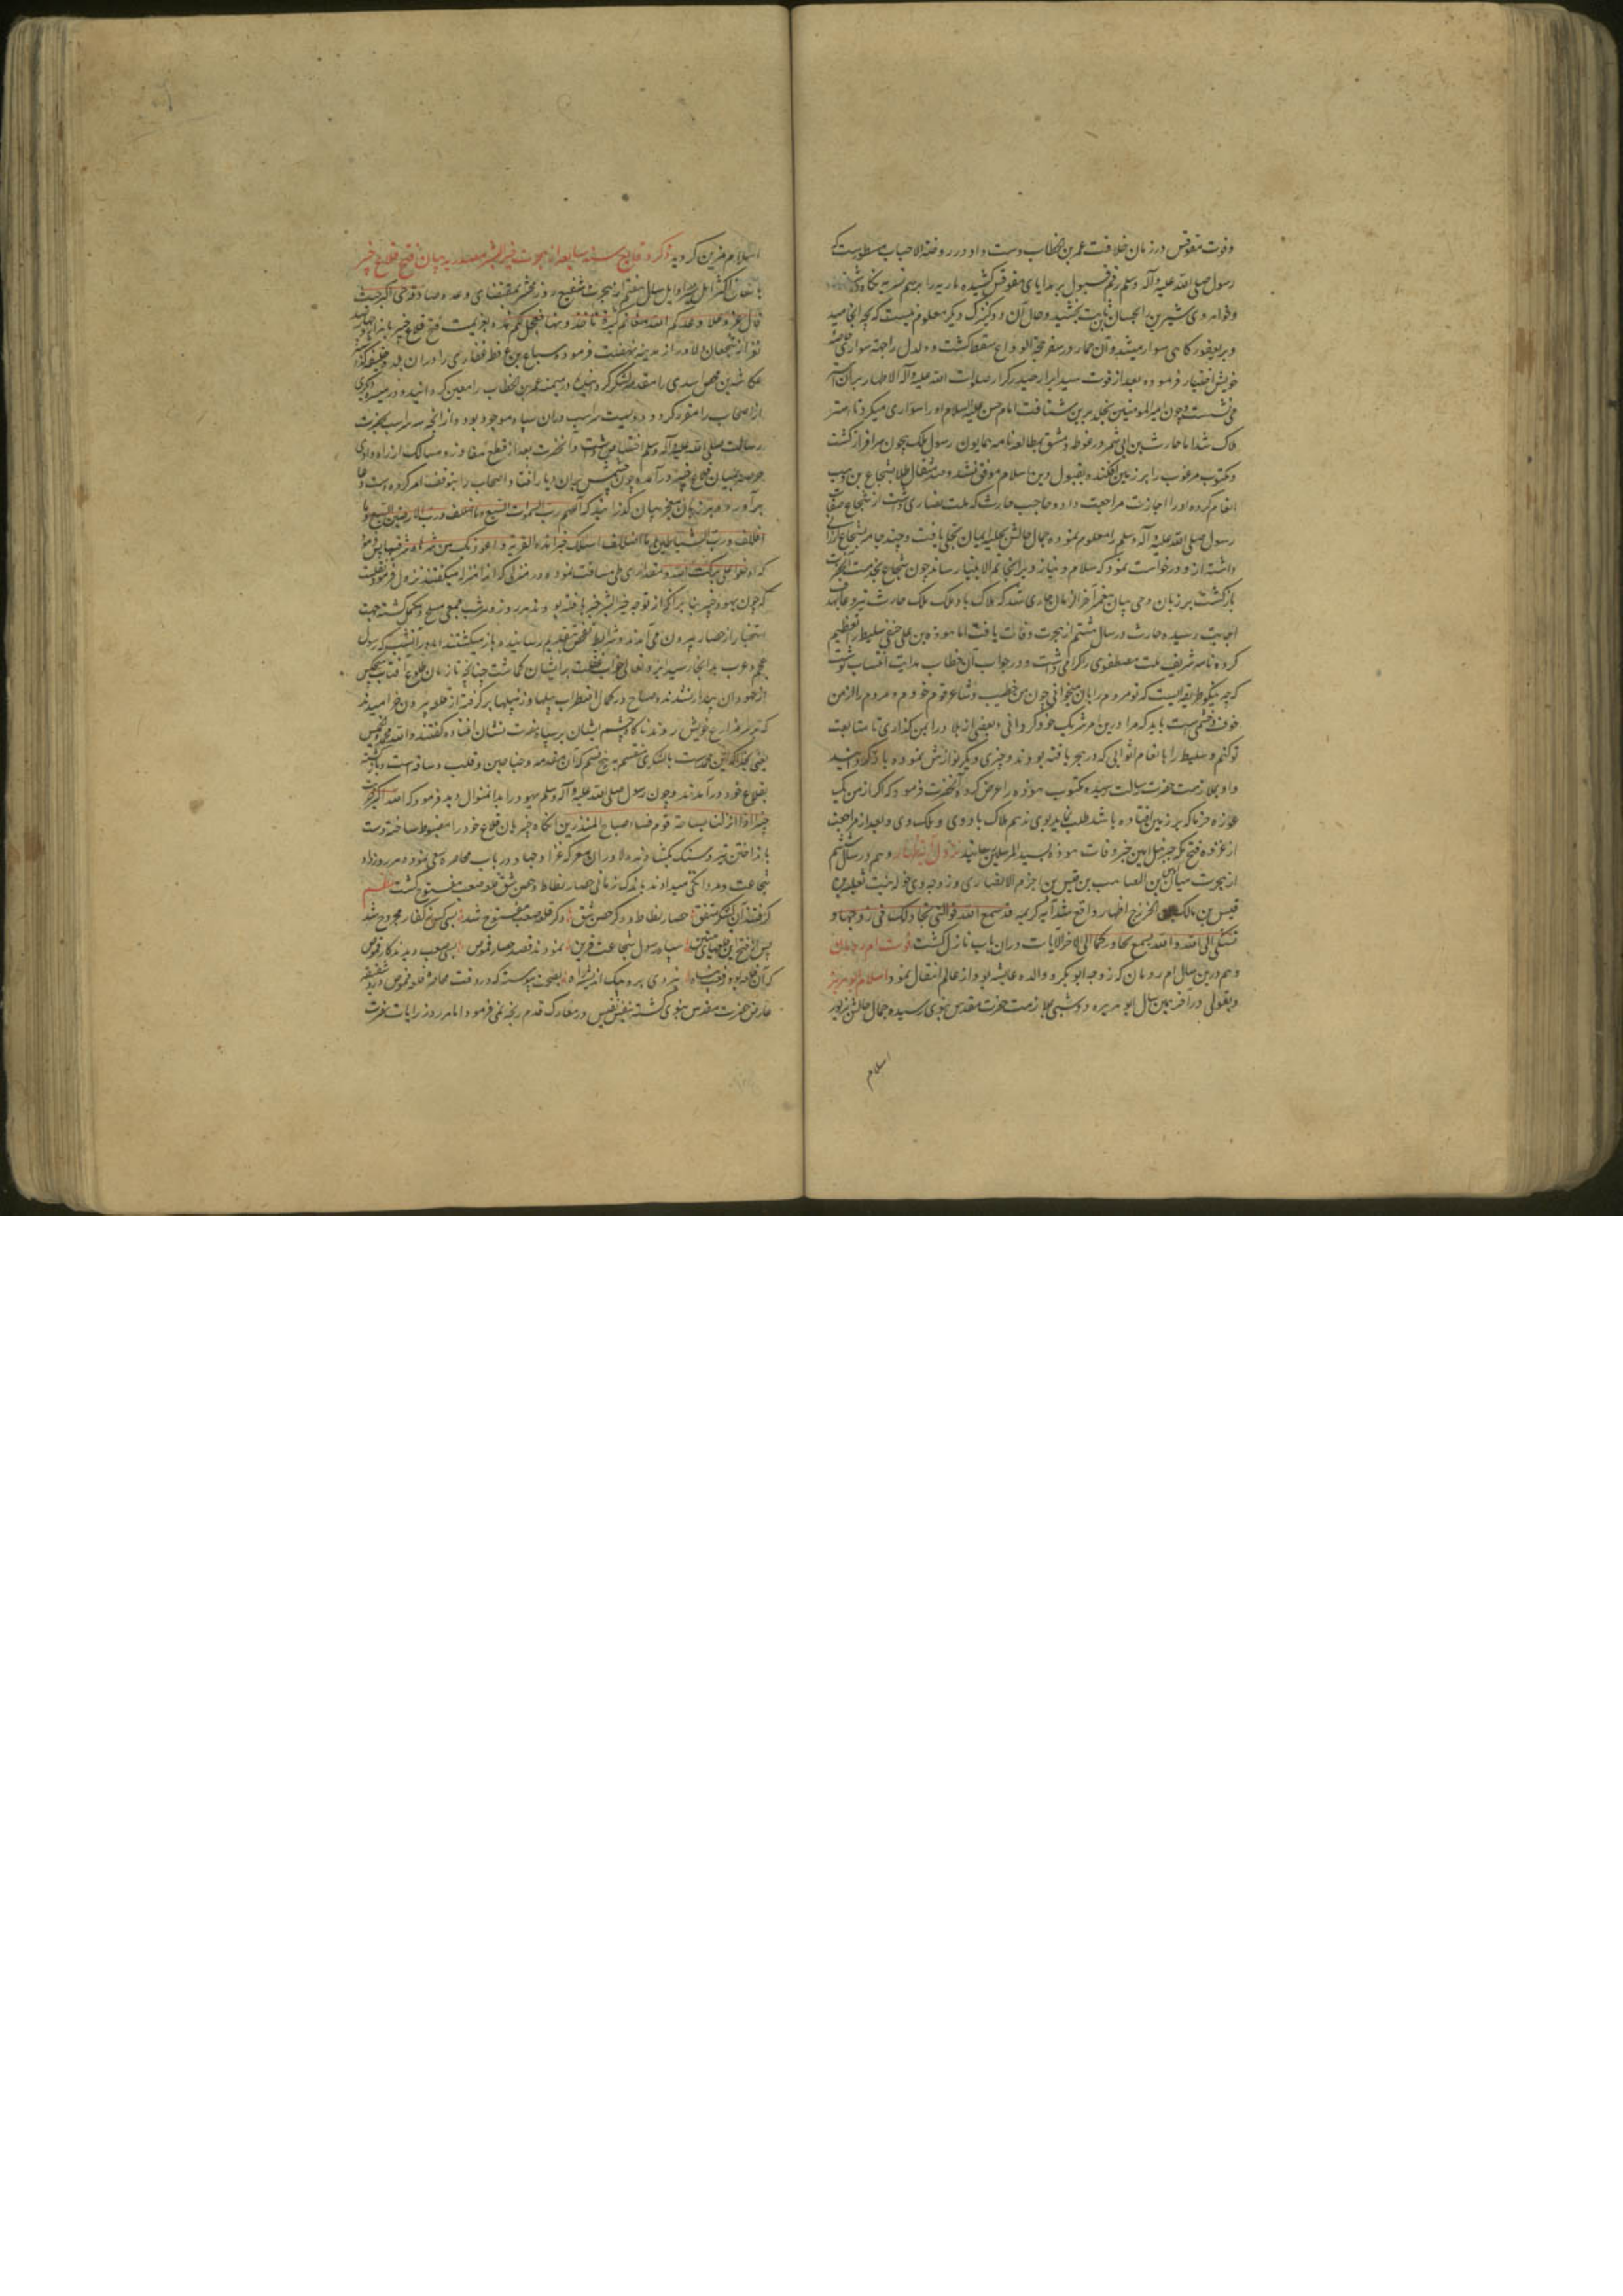 وفوت مقوقس در زمان خلافت عمر بن الخطاب دست داد و در روضة الاحباب مسطورست که
رسول صلی الله علیه وآله وسلم رقم قبول بر هدایای مقوقس کشیده ماریه را برسم سریه نکاه داشته
وخواهر وی شیرین را بحسان بن ثابت بخشید وحال آن دو کنیزک دیکر معلوم نیست که بچه انجامید
وبر یعفور کاهی سوار میشد وآن حمار در سفر حجة الوداع سقط کشت ودلدل را جهة سواری خاصه
خویش اختیار فرموده بعد از فوت سید ابرار حیدر کرار صلوات الله علیه وآله الاطهار بران استر
می نشست وچون امیر المومنین بخلد برین شتافت امام حسن علیه السلام او را سواری میکرد تا استر
هلاک شد اما حارث بن ابی شمر در غوطه دمشق بمطالعه نامه همایون رسول ملک بیچون سرافراز کشت
ومکتوب مرغوب را بر زمین افکنده بقبول دین اسلام موفق نشد وصد مثقال طلا بشجاع بن وهب
انعام کرده او را اجازت مراجعت داد وحاجب حارث که ملت نصاری داشت از شجاع صفات
رسول صلی الله علیه وآله وسلم را معلوم نموده جمال حالش بحلیه ایمان تحلی یافت وچند جامه بشجاع ارزانی
داشته از و درخواست نمود که سلام ونیاز ویرا بخاتم الانبیا رساند چون شجاع بخدمت آنحضرت
بازکشت بر زبان وحی بیان پیغمبر آخر الزمان جاری شد که هلاک باد ملک حارث
اجابت رسیده حارث در سال هشتم از هجرت وفات یافت اما هوذه بن علی حنفی سلیط را تعظیم
کرده نامه شریف ملت مصطفوی را کرامی داشت ودر جواب آن خطاب هدایت انتساب نوشت
که چه نیکو طریقه ایست که تو مردم را بدان میخوانی چون من خطیب وشاعر قوم خودم ومردم را از من
خوف وخشیتی هست باید که مرا درین امر شریک خود کردانی وبعضی از بلاد را بمن کذاری تا متابعت
تو کنم وسلیط را بانعام اثوابی که در هجر بافته بودند وچیزی دیکر نوازش نموده بازکردانید
واو بملازمت حضرت رسالت رسیده مکتوب هوذه را عرض کرد وآنحضرت فرمود که اکر از من یک
غوره خرما که بر زمین افتاده باشد طلب نماید بوی ندهم هلاک باد وی وملک وی وبعد از مراجعت
از غزوه فتح مکه جبرئیل امین خبر وفات هوذه بسید المرسلین رسانید نزول آیه ظهار وهم در سال ششم
از هجرت میان اوس بن الصامت بن قیس بن اصرم الانصاری وزوجه وی خوله بنت ثعلبه بن
قیس بن مالک الخزرج اظهار واقع شد آیه کریمه قد سمع الله قول التی تجادلک فی زوجها و
تشتکی الی الله والله یسمع تحاورکما الی آخر الآیات دران باب نازل کشت فوت ام رومان
وهم درین سال ام رومان که زوجه ابو بکر ووالده عایشه بود از عالم انتقال نمود اسلام ابو هریره
وبقولی در آخر همین سال ابو هریره دوسی بملازمت حضرت مقدس نبوی رسیده جمال حالش بزیور
اسلام
اسلام مزین کردید ذکر وقایع سنه سابعه از هجرت خیر البشر مصدر به بیان فتح قلاع خیبر
باتفاق اکثر اهل سیر اوایل سال هفتم از هجرت شفیع روز محشر بمقتضای وعده صادقه حی اکبر حیث
قال عز وعلا وعدکم الله مغانم کثیرة تاخذونها فعجل لکم هذه بعزیمت فتح قلاع خیبر با هزار وچهارصد
نفر از شجعان دلاور از مدینه نهضت فرمود وسباع بن عرفطه غفاری را دران بلده خلیفه کذاشته
عکاشه بن محصن اسدی را مقدمه لشکر کردانید ودر میمنه عمر بن الخطاب را معین کردانید ودر میسره دیکری
از اصحاب را مقرر کرد ودویست سر اسب دران سپاه موجود بود واز انجمله سه سر اسب بحضرت
رسالت صلی الله علیه وآله وسلم اختصاص داشت وآنحضرت بعد از قطع مفاوز ومسالک از راه وادی
خرصه میان قلاع خیبر درآمده چون چشمش بران دیار افتاد اصحاب را بتوقف امر کرده دست دعا
برآورده بر زبان معجز بیان کذرانید که اللهم رب السموات السبع وما اظللن ورب الارضین السبع وما
اقللن ورب الشیاطین وما اضللن اسئلک خیر هذه القریة واعوذ بک من شرها وشر ما فیها پس فرمود
که ادخلوا علی برکت الله ومقداری طی مسافت نموده در منزلی که انرا منزله میکفتند نزول فرمود
که چون یهود خیبر بنابر آنکه از توجه خیر البشر خبر یافته بودند هر روز وهر شب جمعی مسلح ومکمل کشته جهت
استخبار از حصار بیرون می آمدند وشرایط تفحص بتقدیم رسانیده باز میکشتند اما در آن شب که رسول
عجم وعرب بدانجا رسید ایزد تعالی خواب غفلت بر ایشان کماشت چنانچه تا زمان طلوع آفتاب هیچکس
از جهودان بیدار نشدند وصباح در کمال اضطراب بیلها وزنبیلها برکرفته از قلعه بیرون خرامیدند
که بر سر مزارع خویش روند ناکاه چشم ایشان بر سپاه نصرت نشان افتاده کفتند والله محمد والخمیس
یعنی بخدا که این محمدست با لشکری منقسم به پنج قسم که آن مقدمه وجناحین وقلب وساقه است وبازکشته
بقلاع خود درآمدند وچون رسول صلی الله علیه وآله وسلم یهود را بدانمنوال دید فرمود که الله اکبر خربت
خیبر انا اذا نزلنا بساحة قوم فساء صباح المنذرین آنکاه خیبریان قلاع خود را مضبوط ساخته دست
بانداختن تیر وسنک بکشادند ودلاوران معرکه غزا وجهاد در باب محاصره سعی نموده هر روز داد
شجاعت ومردانکی میدادند باندک زمانی حصار نطاط وحصن شق وقلعه صعب مفتوح کشت نظم
کرفتند آن لشکر متفق حصار نطاط ودکر حصن شق دکر قلعه صعب مفتوح شد بسی کس ز کفار مجروح شد
پس از فتح این قلعهای متین سپاه رسول شجاعت قرین نمودند قصد حصار قموص بسی صعب دیدند کار قموص
که آن قلعه بود در غایت نیزدی برو جنک اندیشه راه بصحت پیوسته که در وقت محاصره قلعه قموص درد شقیقه
عارض حضرت مقدس نبوی کشته بنفس نفیس در معارک قدم رنجه نمی فرمود اما هر روز رایات نصرت